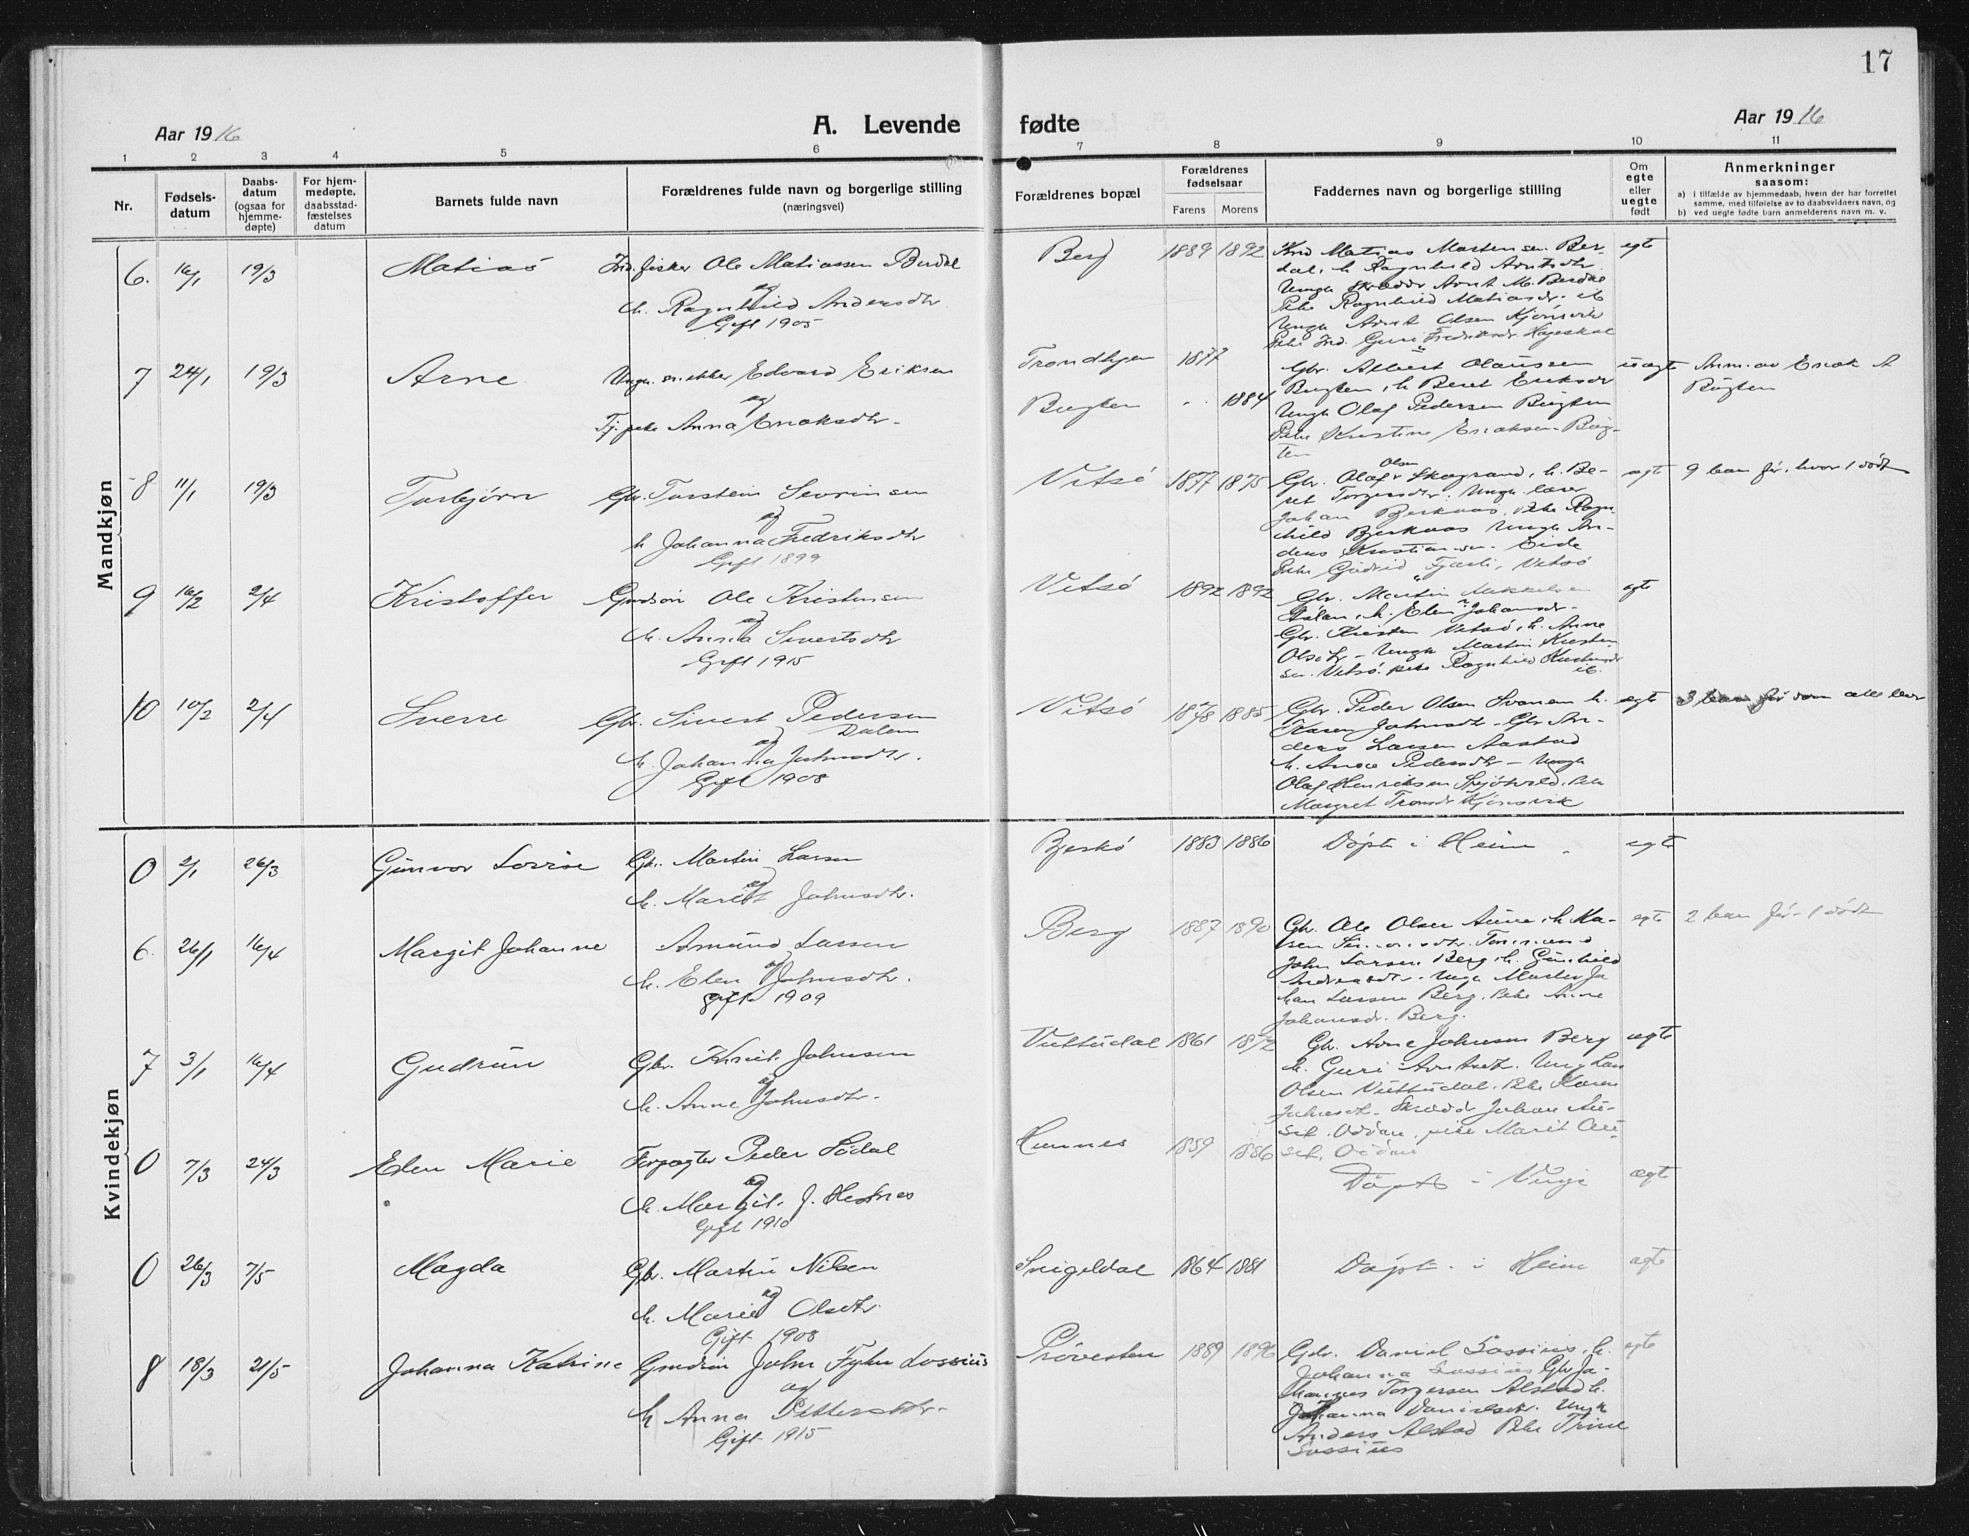 17
Aar 1916
A. Levende fødte
Aar 1916
1 2 3 4 5 6 7 8 9 10 11
Nr.
Fødsels-
datum
Daabs-
datum
(ogsaa for
hjemme-
døpte)
For hjem-
medøpte,
daabsstad-
fæstelses
datum
Barnets fulde navn
Forældrenes fulde navn og borgerlige stilling
(næringsvei)
Forældrenes bopæl
Forældrenes
fødselsaar
Farens Morens
Faddernes navn og borgerlige stilling
Om
egte
eller
uegte
født
Anmerkninger
saasom:
a) i tilfælde av hjemmedaab, hvem der har forrettet
samme, med tilføielse av to daabsvidners navn, og
b) ved uegte fødte barn anmelderens navn m. v.
Mandkjøn
6. 16/1 19/3 Matias
Ind. fisker Ole Matiassen Berdal
og
h. Ragnhild Andersdtr.
Gift 1905
Berg 1889 1892
Ind Matias Martensen Ber-
dal, h. Ragnhild Arntsdtr.
Ungk. Arnt M. Berdal
Pike Ragnhild Matiasdr. ib
Ungk Arnt Olsen Kjönsvik
Pike Ind. Guri Fredriksdr
egte
7 24/1 19/3 Arne
Ungk. snekker Edvard Eriksen
og
Tj. pike Anna Enoksdtr.
Trondhjem 1877
Bugten 1884
Gbr. Albert Olaussen
Bugten, h Beret Eriksdr
Ungk Olaf Pedersen Bugten
Pike Kristine Enoksen Bug-
ten
uegte
Anm. av Enok A
Bugten
8 11/1 19/3 Torbjörn
Gbr. Torstein Sevrinsen
og
h Johanna Fredriksdtr
Gift 1899
Vitsö 1877 1875
Olsen
Gbr. Olaf Skogrand, h. Be-
ret Torgersdtr. Ungk. lærer
Johan Bjerkaas, Pike Ragn-
hild Bjerkaas Ungk An-
ders Kristiansen Eide
Pike Gudrid Vitsö
egte
9 barn för, hvor 1 död
9 16/2 2/4 Kristoffer
Grdsön Ole Kristensen
og
h. Anna Sivertsdtr
Gift 1915
Vitsö 1892 1892
Gbr. Martin
h. Elen Johansdr.
Gbr. Kristen Vitsö, h. Anne
Olsdtr - Ungk Martin Kristen-
sen. Vitsö. Pike Ragnhild Kristensdr
ib.
egte
10 10/2 2/4 Sverre
Gbr. Sivert Pedersen
Dalem
og
h. Johanna Johnsdtr.
Gift 1908
Vitsö 1878 1885
Gbr. Peder Olsen Svanem h.
Karen Johnsdtr - Gbr An-
ders Larsen Aastad
h. Anne Pedersdtr - Ungk
Olaf Henriksen Pike
Margret Tronsdr Kjönsvik
egte
3 barn för som alle lever
Kvindekjøn
0 2/1 26/3 Gunvor Lovise
Gbr. Martin Larsen
og
h. Marit Johnsdtr.
Bjerkö 1883 1886
Döpt i Heim
egte
6. 26/1 16/4 Margit Johanne
Amund Larsen
og
h. Elen Johnsdtr.
gifte 1909
Berg 1887 1890
Gbr. Ole Olsen Aune, h Ka-
ren Simonsdtr. Tömmermand
John Larsen Berg h. Gunhild
Andreasdtr. Ungk Martin Jo
han Larsen Berg. Pike Anne
Johansdr. Berg.
egte
2 barn för - 1 död
7 3/1 16/4 Gudrun
Gbr. Knut Johnsen
og
h. Anne Johnsdtr.
Vuttudal 1861 1872
Gbr. Arne Johnsen Berg
h. Guri Arntsdt. Ung Lars
Olsen Vuttudal. Pike Karen
Johnsdt. Skrædd Johan Au-
set. Oddan, pike Marit Au-
set, Oddan
ægte
0 7/3 24/3 Elen Marie
Forpagter Peder Södal
og
h. Margit. J. Hestnes
Gift 1910
Hemnes 1859 1886
Döpt i Vinje
ægte
0 26/3 7/5 Magda
Gbr. Martin Nilsen
og
h. Marie Olsdtr.
Gift 1908
Snigeldal 1864 1881
Döpt i Heim
egte
8 18/3 21/5 Johanna Katrine
Grndsön John Fyhn Lossius
og
h Anna Pettersdtr.
Gift 1915
Prövesten 1889 1896
Gdr. Daniel Lossius, h.
Johanna Lossius Gbr Jo-
hannes Torgersen Alstad h.
Johanna Danielsdtr. Ungk
Anders Alstad Pike Trine
Lossius
egte